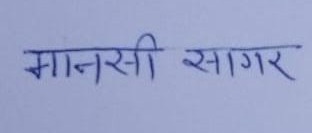 मानसी सागर